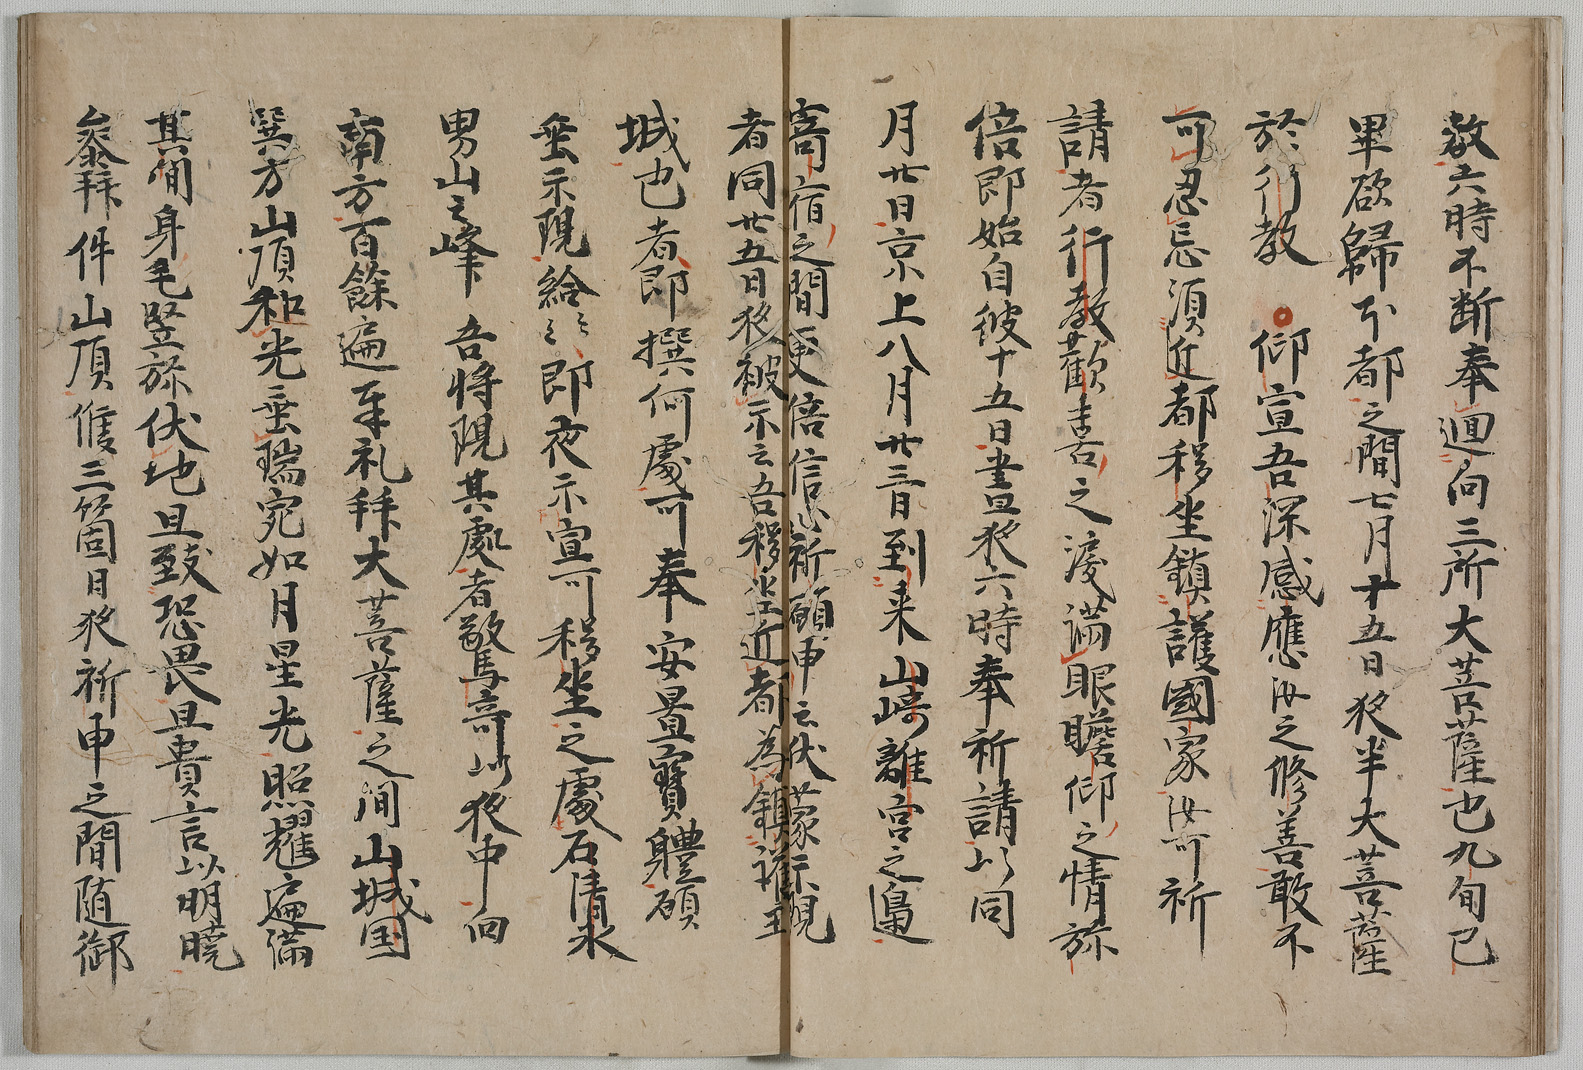 敬六時不断奉廻向三所大菩薩也九旬已
畢欲歸本都之間七月十五日夜半大菩薩
於行教 仰宣吾深感應汝之修善敢不
可忍忘須近都移坐鎮護國家汝可祈
請者行教歓喜之涙満眼瞻仰之情弥
倍即始自彼十五日晝夜六時奉祈請以同
月廿日京上八月廿三日到来山崎離宮之邊
寄宿之間更倍信心祈願申云伏蒙示現
者同廿五日夜被示云吾移坐近都為鎮護王
城也者即撰何處可奉安置寶體碩
垂示現給々即夜示宣可移坐之處石清水
男山之峰吾将現其處者敬驚奇以夜中向
南方百餘遍奉礼拝大菩薩之間山城国
巽方山頂和光垂瑞宛如月星光照耀遍満
其間身毛竪弥伏地且致恐畏且貴言以明暁
参拝件山頂惟三箇日夜祈申之間随御